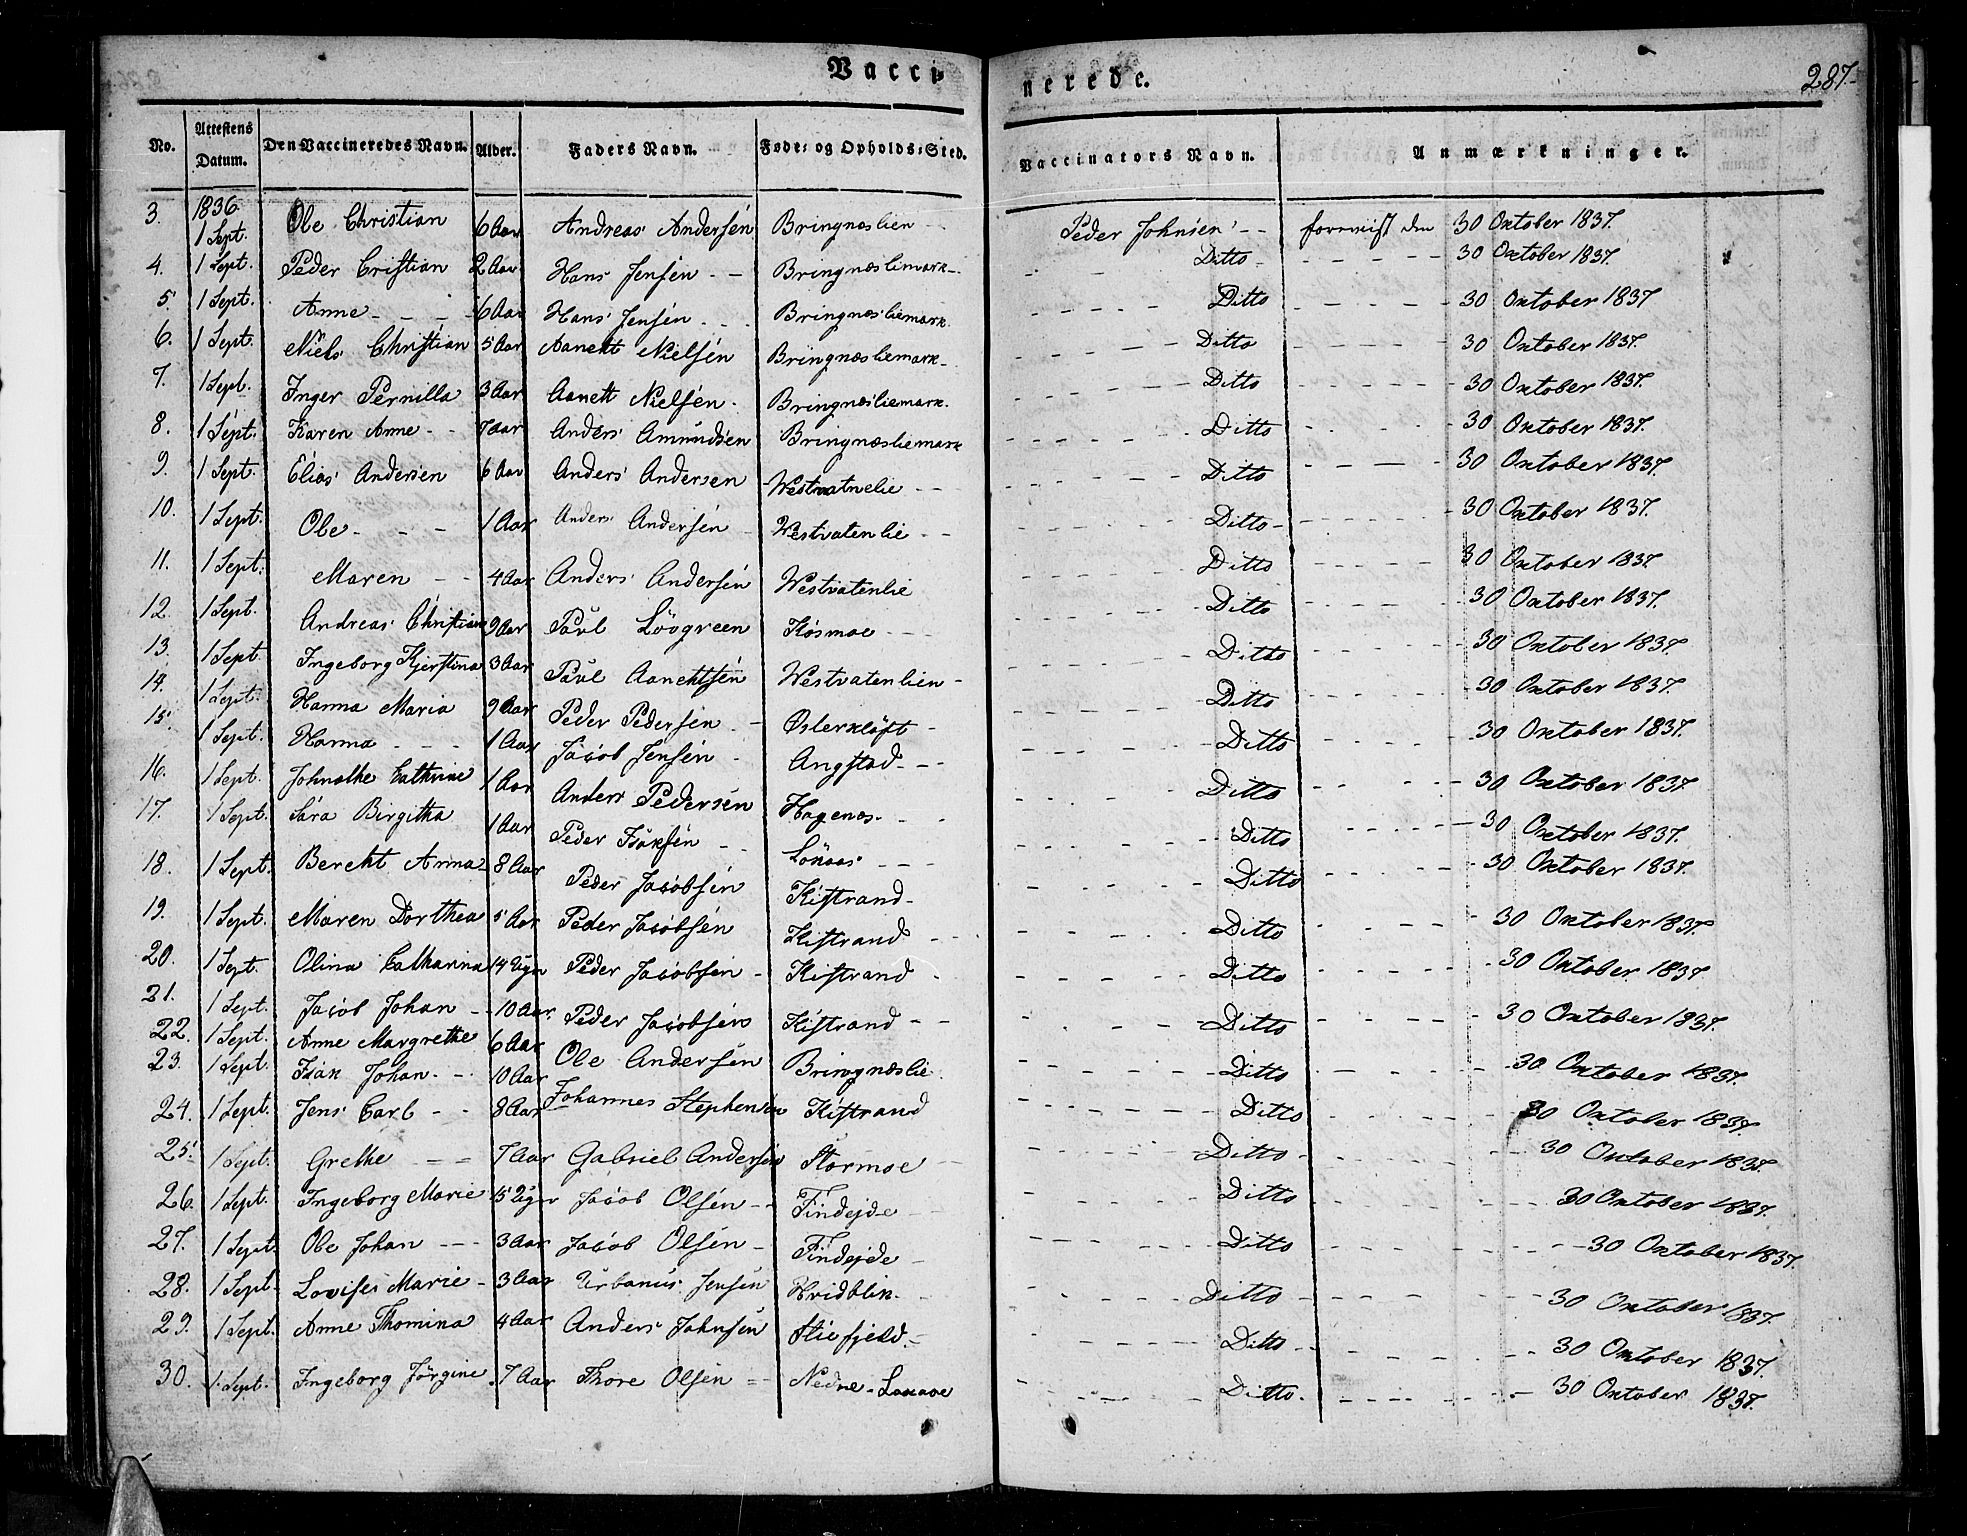 Vaccinerede. 287.
No. Attestens Datum. Den Vaccineredes Navn. Alder. Faders Navn. Føde- og Opholds-Sted. Vaccinators Navn. Anmærkninger.
3. 1836. 1 Sept. Ole Christian 6 Aar Andreas Andersén Bringnæslien -- Peder Johnsen -- foreviist den 30 October 1837.
4. 1 Sept. Peder Cristian 2 Aar Hans Jensén -- Bringnæsliemark -- Ditto 30 October 1837.
5. 1 Sept. Anne 6 Aar Hans Jensén Bringnæsliemark. Ditto 30 October 1837
6. 1 Sept. Niels Christian 5 Aar Aanekt Nielsén Bringnæsliemark Ditto 30 October 1837.
7. 1 Sept. Inger Pernilla 3 Aar Aanett Nielsén. Bringnæsliemark. Ditto 30 October 1837.
8. 1 Sept. Karen Anne 7 Aar Anders Amundsen Bringnæsliemark Ditto 30 October 1837.
9. 1 Sept. Elias Andersen 6 Aar Anders Andersen Westvatnelie Ditto 30 October 1837.
10. 1 Sept. Ole 1 Aar Anders Andersén Westvatenlie Ditto 30 October 1837.
11. 1 Sept. Maren 4 Aar Anders Andersén Westvatenlie Ditto 30 October 1837
12. 1 Sept. Andreas Christian 9 Aar Paul Lövgreen Kosmoe Ditto 30 October 1837.
13. 1 Sept. Ingeborg Kjerstina 3 Aar Paul Aanektsén Westvatenlien Ditto 30 October 1837.
14. 1 Sept. Hanna Maria 9 Aar Peder Pedersén Østerkløft Ditto 30 October 1837.
15. 1 Sept. Hanna 1 Aar Jacob Jensén Angstad Ditto 30 October 1837.
16. 1 Sept. Cathrine 1 Aar Anders Pedersén Hagenæs Ditto 30 October 1837
17. 1 Sept. Sara Birgitha 1 Aar Peder Isaksén Ditto 30 October 1837.
18. 1 Sept. Berekt Anna 8 Aar Peder Jacobsén Kistrand Ditto 30 October 1837.
19. 1 Sept. Maren Dorthea 5 Aar Peder Jacobsén Kistrand Ditto 30 October 1837.
20. 1 Sept. Olina Catharina 14 Uger Peder Jacobsén Kistrand Ditto 30 October 1837
21. 1 Sept. Jacob Johan 10 Aar Peder Jacobsén Kistrand Ditto 30 October 1837.
22. 1 Sept. Anne Margrethe 6 Aar Ole Andersén Bringnæslie Ditto 30 October 1837.
23. 1 Sept. Isak Johan 10 Aar Johannes Stephensén Kistrand Ditto 30 October 1837.
24. 1 Sept. Jens Carl 8 Aar
25. 1 Sept. Grethe 7 Aar Gabriel Andersén Stormoe Ditto 30 October 1837.
26. 1 Sept. Ingeborg Marie 15 Uger Jacob Olsén Findejde Ditto 30 October 1837.
27. 1 Sept. Ole Johan 3 Aar Jacob Olsén Findejde Ditto 30 October 1837.
28. 1 Sept. Lovise Marie 3 Aar Urbanus Jensén Hvidblik Ditto 30 October 1837.
29. 1 Sept. Anne Thomina 4 Aar Anders Johnsén Ditto 30 October 1837.
30. 1 Sept. Ingeborg Jörgine 7 Aar Thore Olsén Nedre Ditto 30 October 1837.